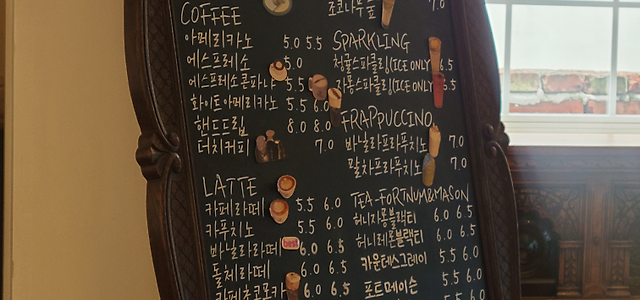 COFFEE
아메리카노 5.0 5.5
에스프레소 5.0
에스프레소콘파나 5.5
화이트아메리카노 5.5 6.0
핸드드립 8.0 8.0
더치커피 7.0
LATTE
카페라떼 5.5 6.0
카푸치노 5.5 6.0
바닐라라떼 best 6.0 6.5
돌체라떼 6.0 6.5
카페초코모카 6.0 6.5
조코나무숲 7.0
SPARKLING
청귤스파클링(ICE ONLY) 6.5
자몽스파클링(ICE ONLY) 6.5
FRAPPUCCINO
바닐라프라푸치노 7.0
말차프라푸치노 7.0
TEA-FORTNUM&MASON
허니자몽블랙티 6.0 6.5
허니레몬블랙티 6.0 6.5
카운테스그레이 5.5 6.0
포트메이슨 5.5 6.0
5.5 6.0